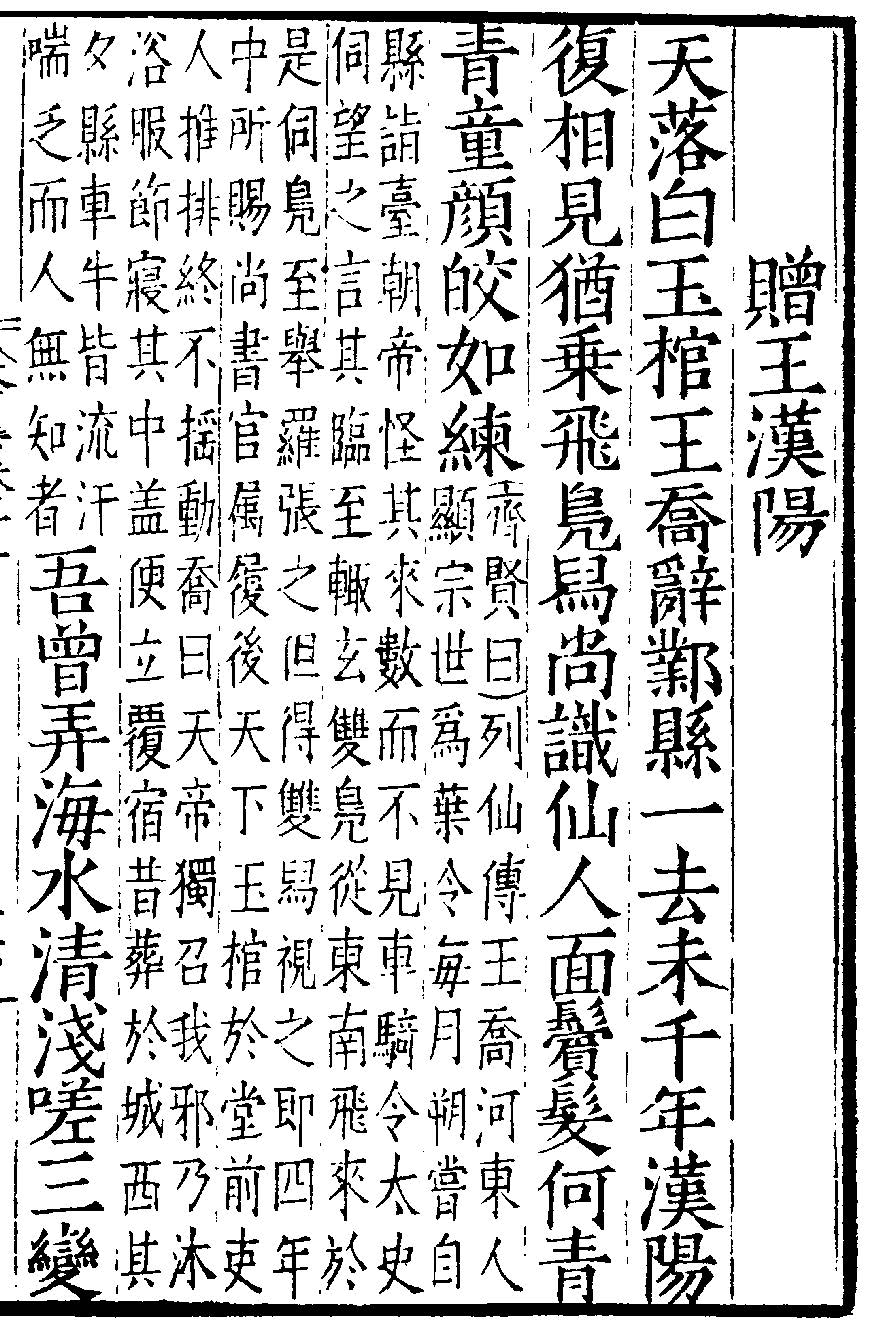 贈王漢陽
天落白玉棺王喬辭鄴縣一去未千年漢陽
復相見猶乗飛鳧舄尚識仙人面鬢髮何青
青童顔皎如練齊賢曰列仙傳王喬河東人
顯宗世爲葉令每月朔嘗自
縣詣臺朝帝怪其來數而不見車騎令太史
伺望之言其臨至輙玄雙鳧從東南飛來於
是伺鳧至舉羅張之但得雙舄視之即四年
中所賜尚書官屬履後天下玉棺於堂前吏
人推排終不揺動喬曰天帝獨召我邪乃沐
浴服節寢其中盖便立覆宿昔葬於城西其
夕縣車牛皆流汗
喘乏而人無知者吾曾弄海水清淺嗟三變